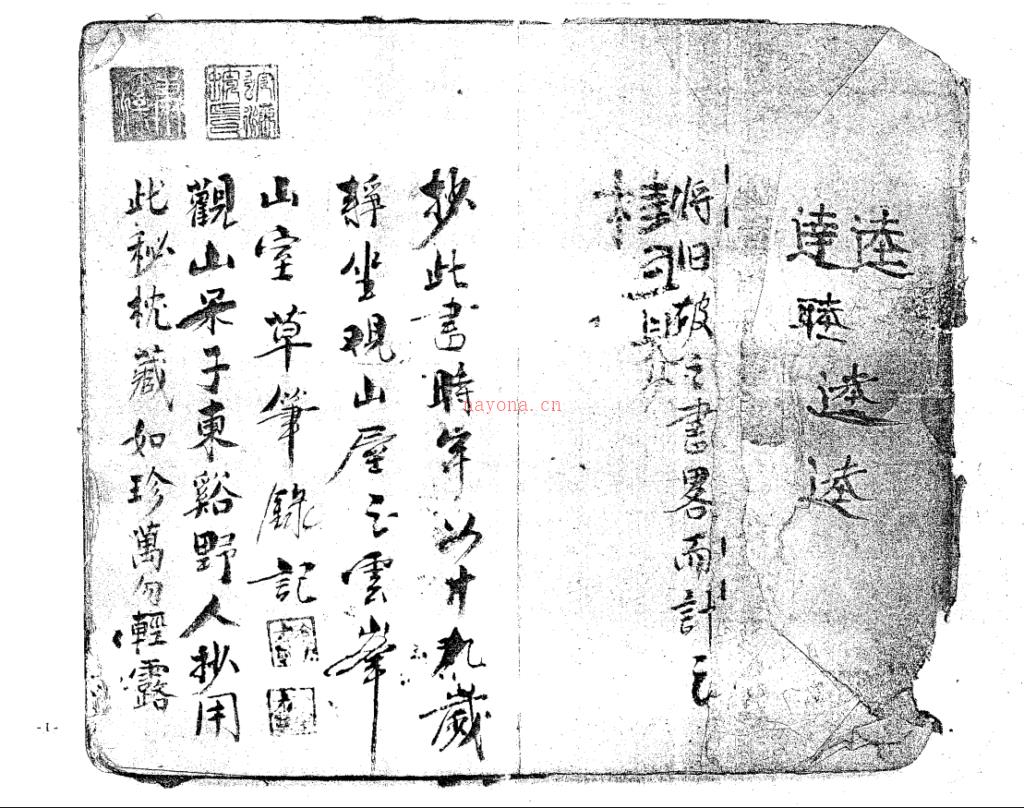 逵
達
聴
逵
逵
将旧破之書畧而計之
抄此書時年以廿九歲
靜坐观山屋之雲峯
山室草筆錄記
觀山呆子東谿野人抄用
此秘枕藏如珍萬勿輕露
nayona.cn
-1-